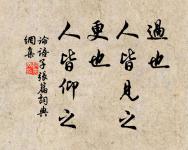 過也
人皆見之
更也
人皆仰之
論語子張篇詞典
網集